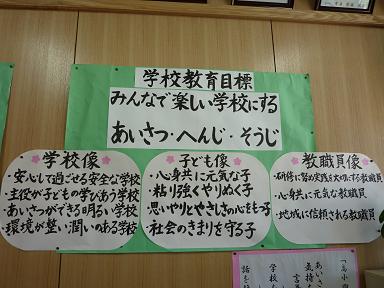 学校教育目標
みんなで楽しい学校にする
あいさつ・へんじ・そうじ
学校像
・安心して過ごせる安全な学校
・主役が子どもの学びあう学校
・あいさつができる明るい学校
・環境が整い潤いのある学校
子ども像
・心身共に元気な子
・粘り強くやりぬく子
・思いやりとやさしさの心をもつ子
・社会のきまりを守る子
教職員像
・研修に努め実践を大切にする教職員
・心身共に元気な教職員
・地域に信頼される教職員
あいさ
気持
言
学校
話も